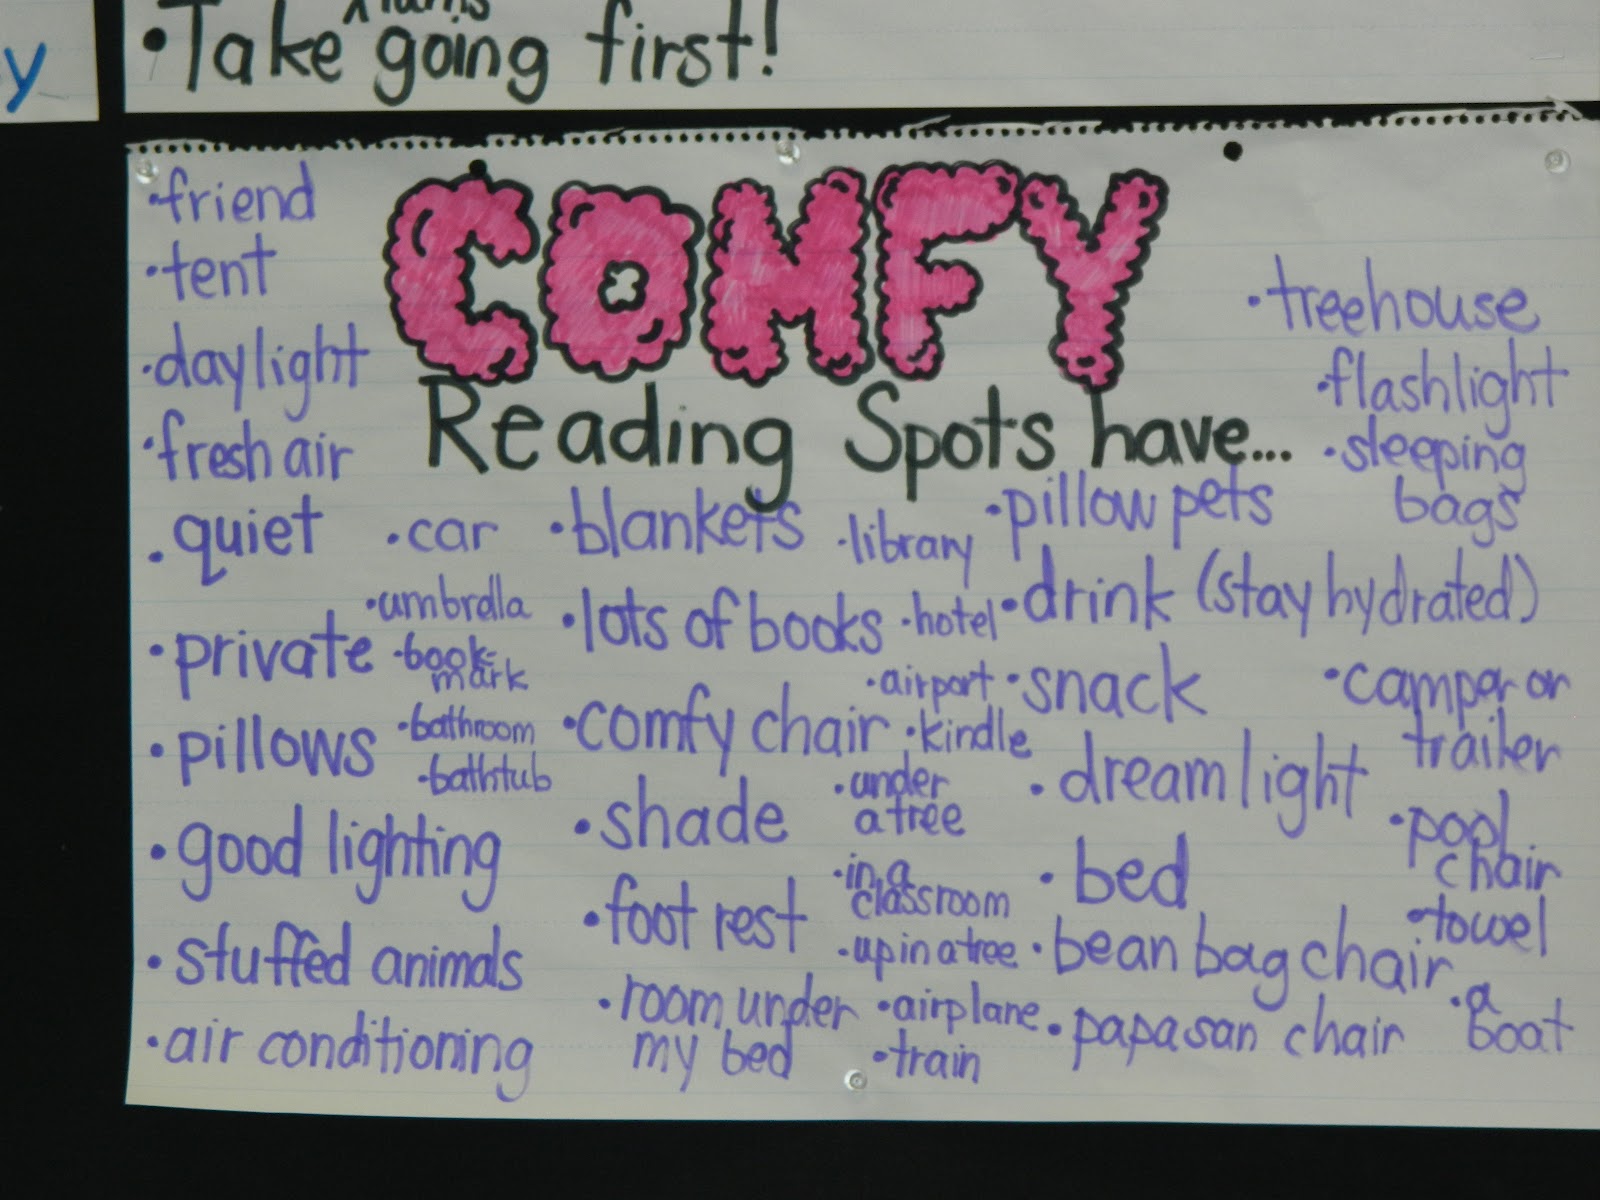 y
turns
• Take ^ going first!
COMFY
Reading Spots have...
• friend
• tent
• daylight
• fresh air
• quiet
• private
• pillows
• good lighting
• stuffed animals
• air conditioning
• car
• umbrella
• book-
mark
• bathroom
• bathtub
• blankets
• lots of books
• comfy chair
• shade
• foot rest
• room under
my bed
• library
• hotel
• airport
• kindle
• under
a tree
• in a
classroom
• up in a tree
• airplane
• train
• pillow pets
• drink (stay hydrated)
• snack
• dream light
• bed
• bean bag chair
• papasan chair
• treehouse
• flashlight
• sleeping
bags
• camper or
trailer
• pool
chair
• towel
• a
boat